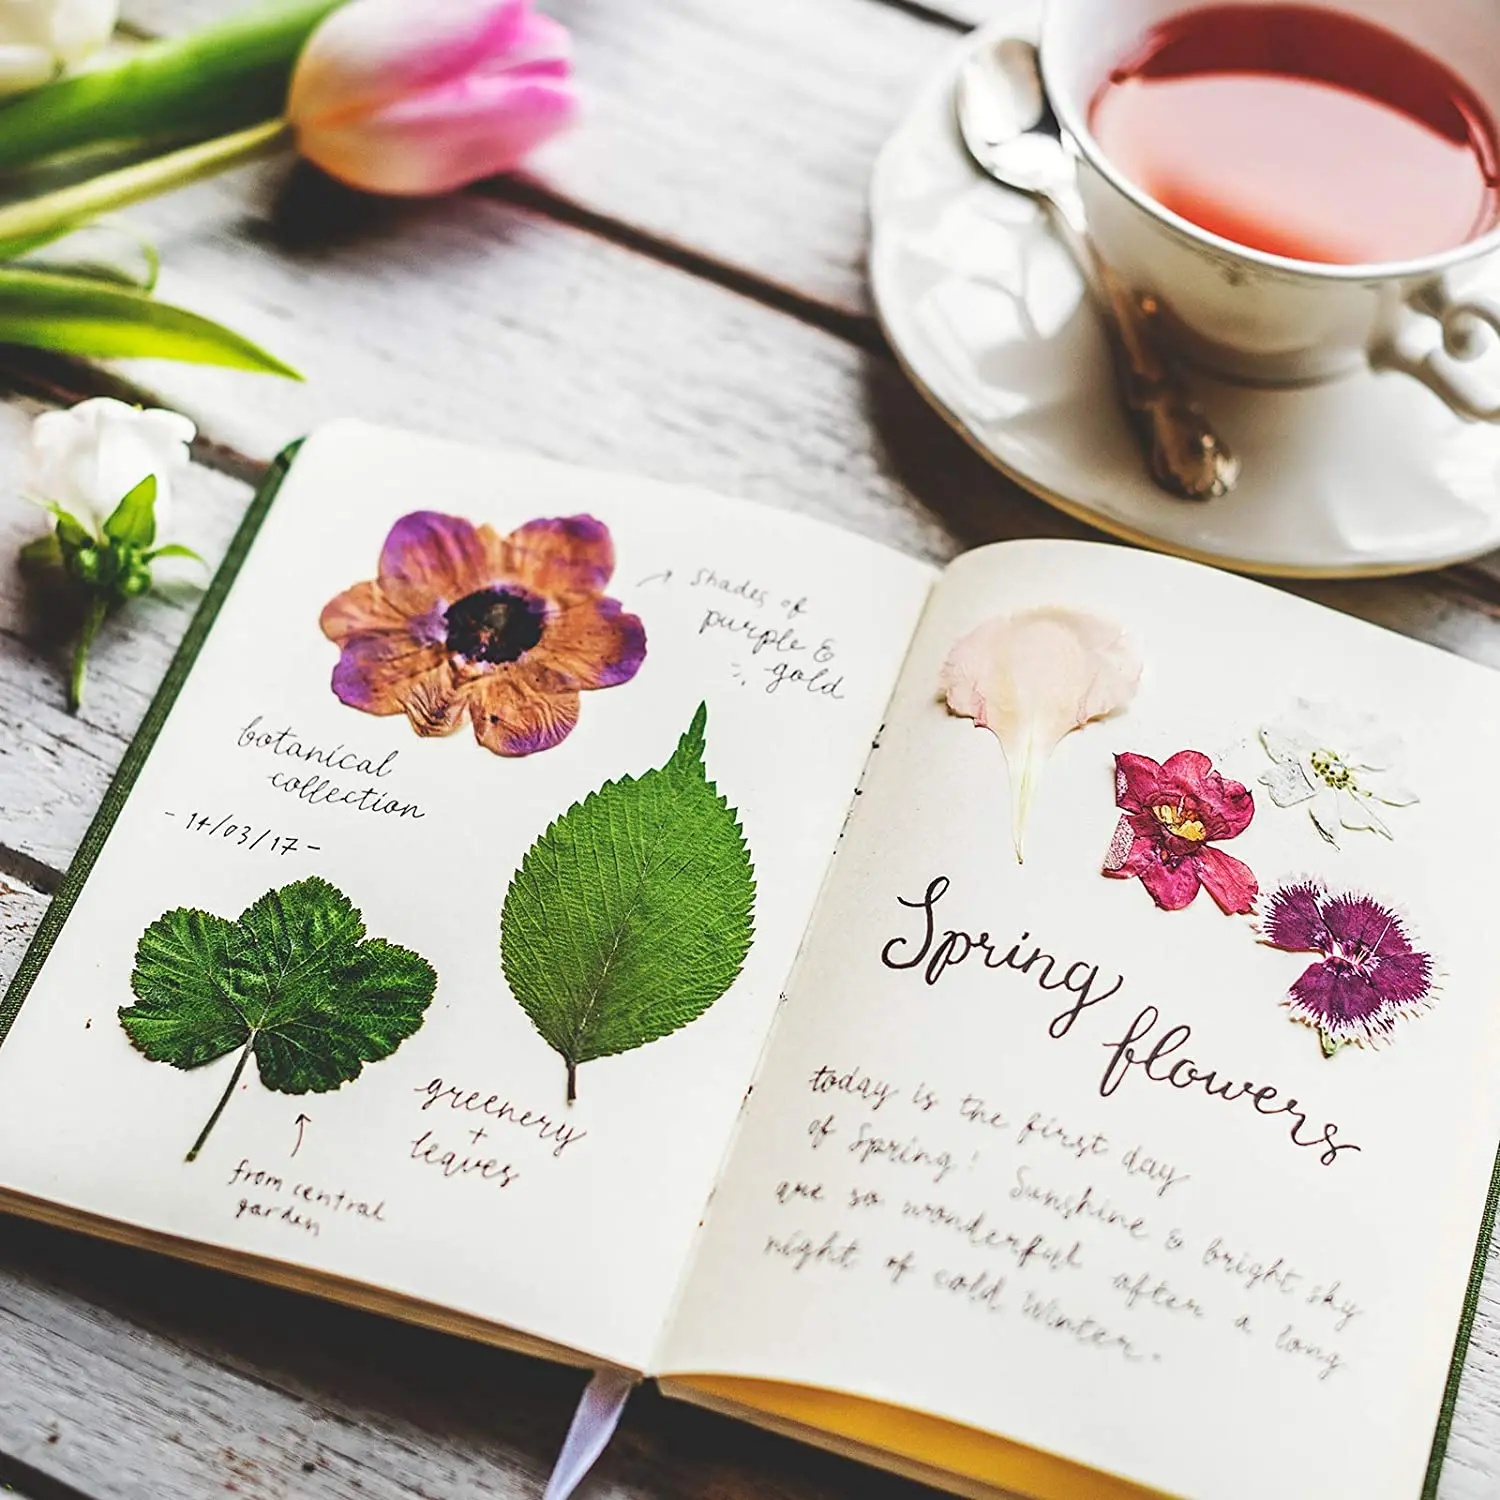 shades of
purple &
gold
botanical
collection
- 14/03/17 -
greenery
+
leaves
from central
garden
Spring flowers
today is the first day
of Spring! Sunshine & bright sky
are so wonderful after a long
night of cold Winter.